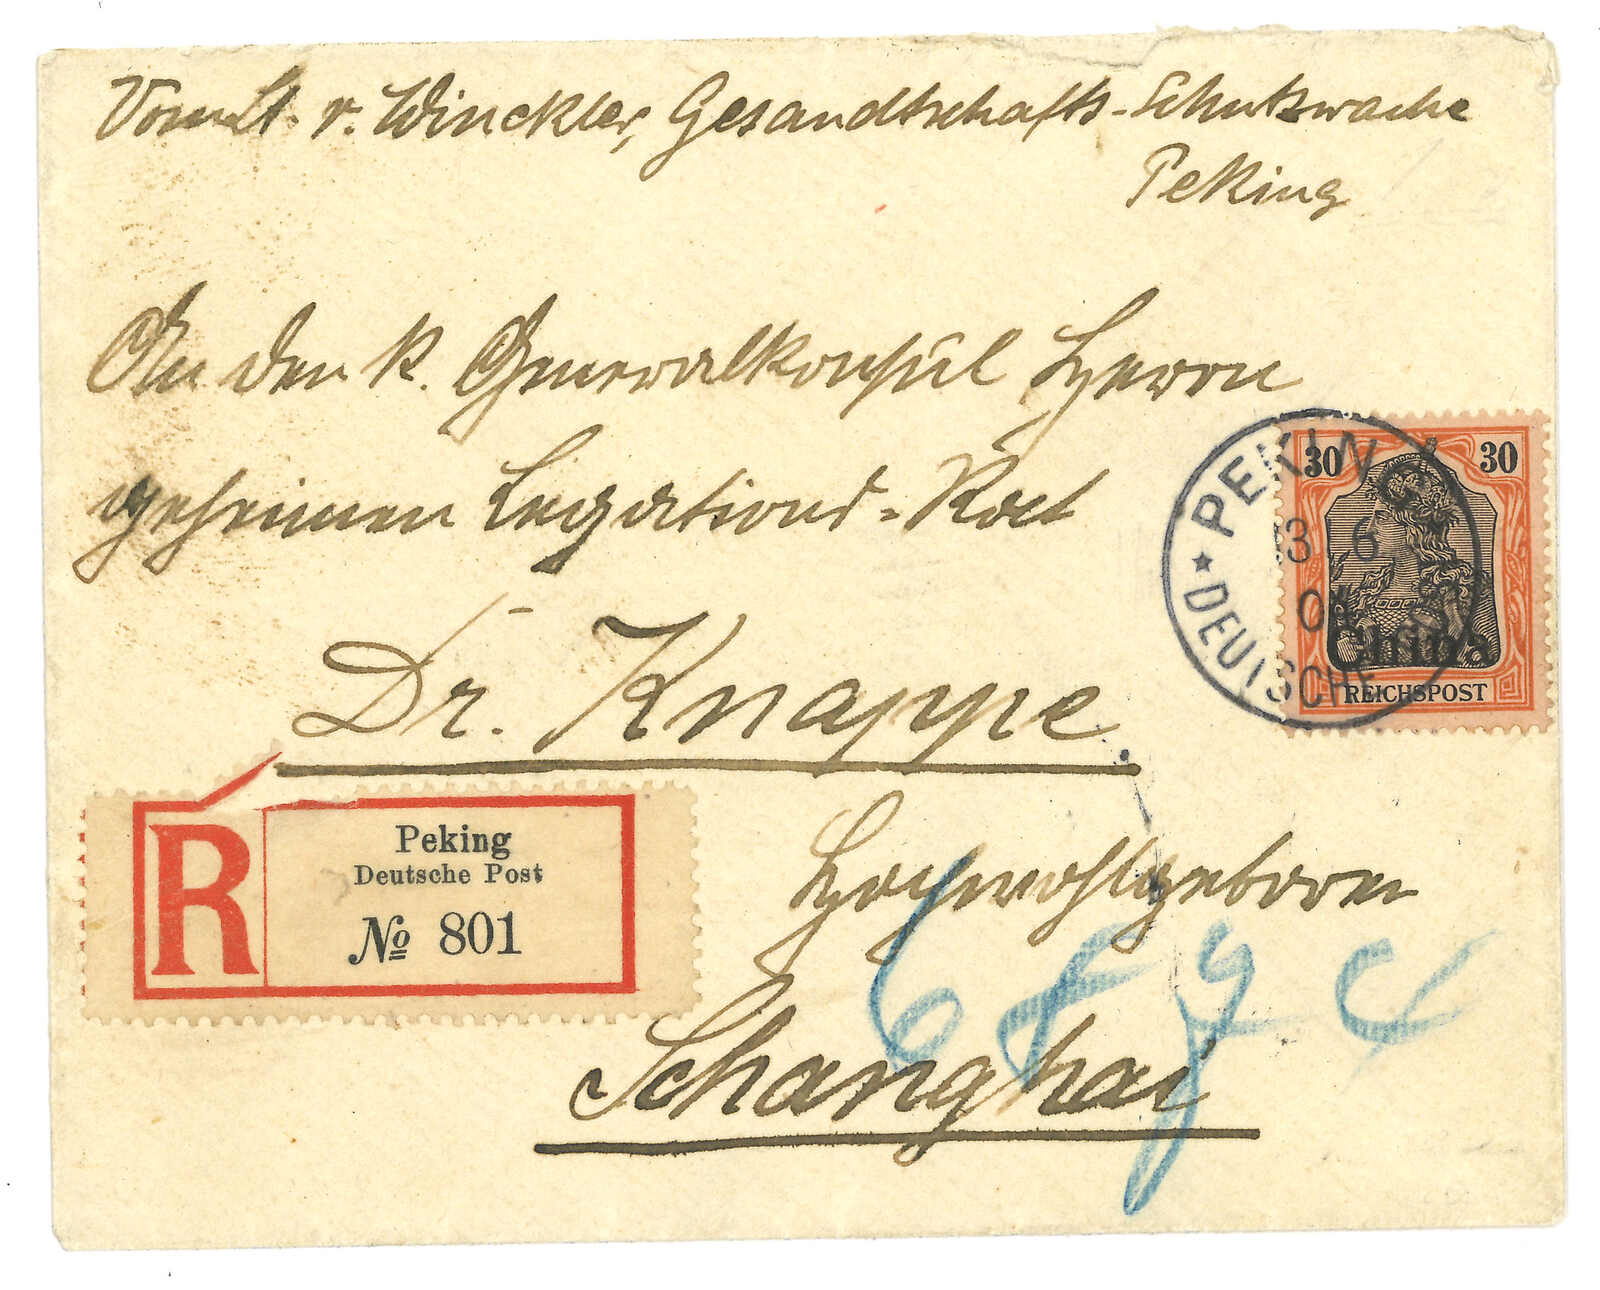 Vom Lt. v. Winckler, Gesandtschafts-Schutzwache
Peking
An den k. Generalkonsul Herrn
geheimen Legations-Rat
Dr. Knappe
Hochwohlgeboren
Schanghai
R
Peking
Deutsche Post
№ 801
30 30
China
REICHSPOST
PEKING
3 6
04
★ DEUTSCHE